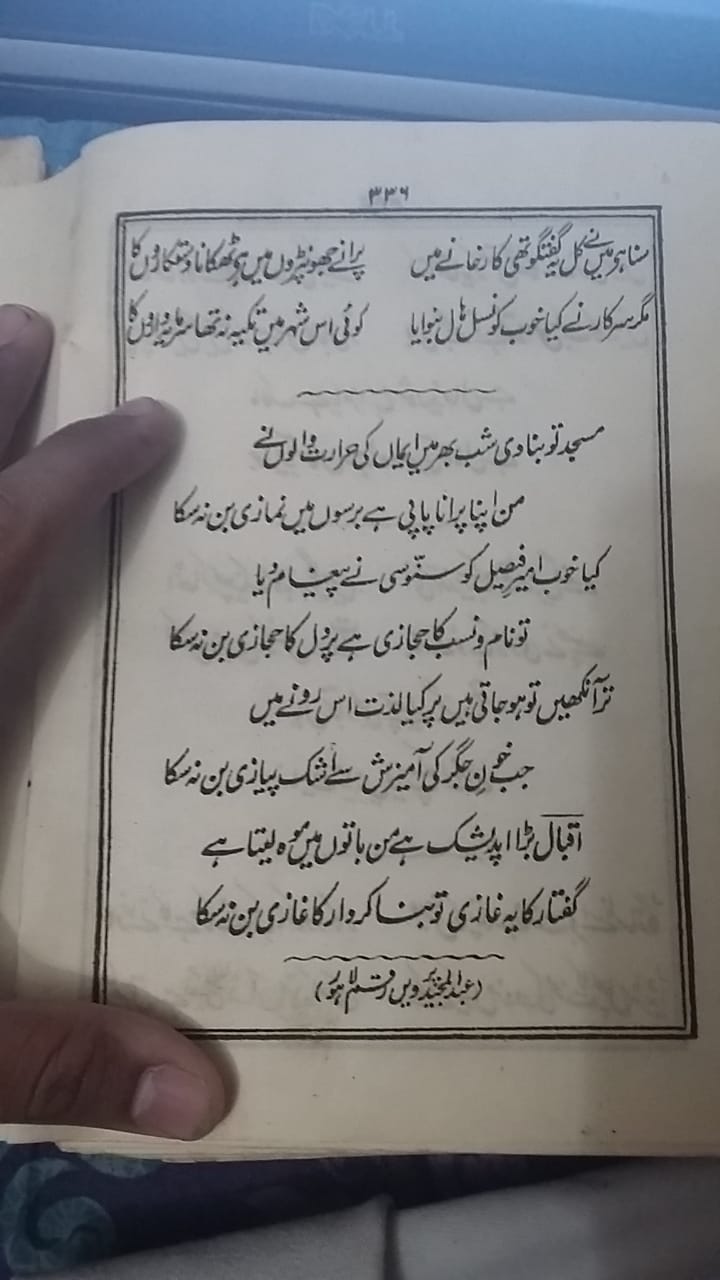 ۳۳۶
سنا ہے میں نے کل یہ گفتگو تھی کارخانے میں پرانے جھونپڑوں میں ہے ٹھکانا دستکاروں کا
مگر سرکار نے کیا خوب کونسل ہال بنوایا کوئی اس شہر میں تکیہ نہ تھا سرمایہ داروں کا
مسجد تو بنا دی شب بھر میں ایماں کی حرارت والوں نے
من اپنا پرانا پاپی ہے برسوں میں نمازی بن نہ سکا
کیا خوب امیر فیصل کو سنّوسی نے پیغام دیا
تو نام و نسب کا حجازی ہے پر دل کا حجازی بن نہ سکا
تر آنکھیں تو ہو جاتی ہیں پر کیا لذت اس رونے میں
جب خونِ جگر کی آمیزش سے اشک پیازی بن نہ سکا
اقبال بڑا اپدیشک ہے من باتوں میں موہ لیتا ہے
گفتار کا یہ غازی تو بنا کردار کا غازی بن نہ سکا
(عبدالمجید پرویں رقم لاہور)